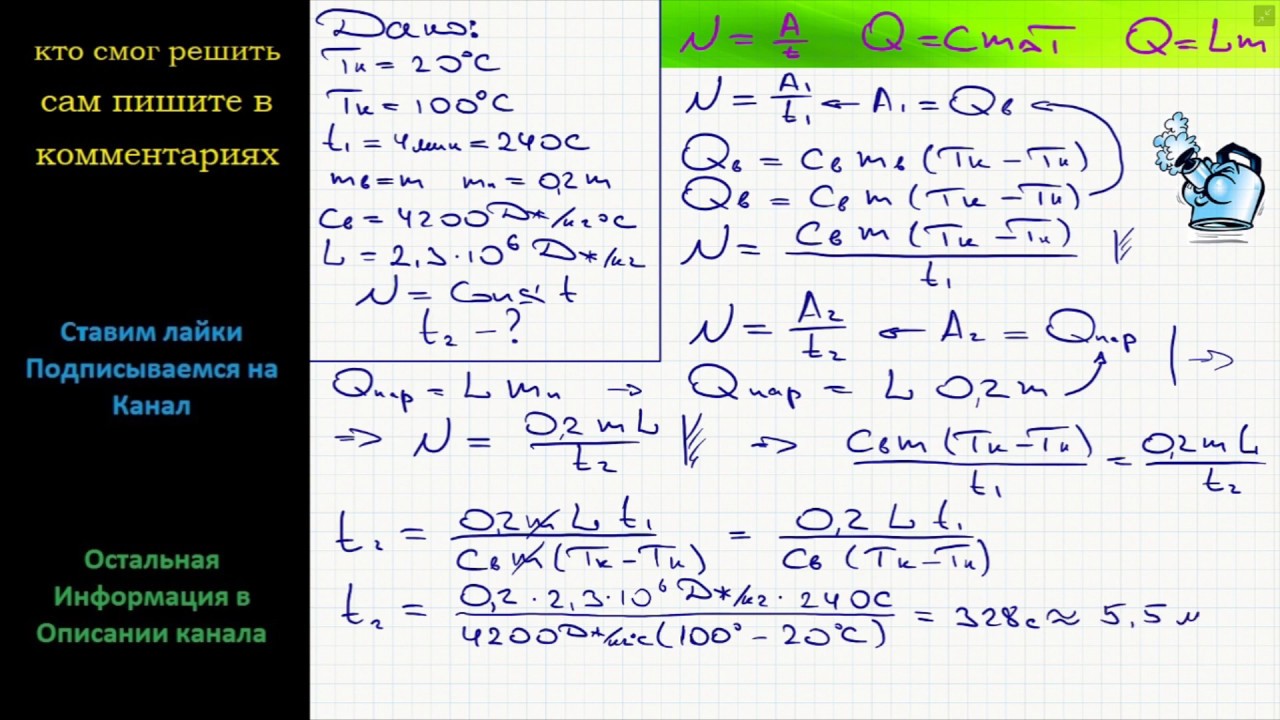 кто смог решить
сам пишите в
комментариях
Ставим лайки
Подписываемся на
Канал
Остальная
Информация в
Описании канала
Дано:
Tн = 20°C
Tк = 100°C
t₁ = 4 мин = 240 С
mв = m mп = 0,2 m
Cв = 4200 Дж/кг°С
L = 2,3·10⁶ Дж/кг
N = Const
t₂ – ?
N = A/t Q = CmΔT Q = Lm
N = A₁/t₁ ← A₁ = Qв
Qв = Cв mв (Tк – Tн)
Qв = Cв m (Tк – Tн)
N = Cв m (Tк – Tн)/t₁
N = A₂/t₂ ← A₂ = Qпар | →
Qпар = L mп → Qпар = L 0,2 m
=> N = 0,2 m L/t₂ => Cв m (Tк – Tн)/t₁ = 0,2 m L/t₂
t₂ = 0,2 m L t₁/Cв m (Tк – Tн) = 0,2 L t₁/Cв (Tк – Tн)
t₂ = 0,2 · 2,3·10⁶ Дж/кг · 240 С/4200 Дж/кг°С (100° – 20°C) = 328 с ≈ 5,5 м